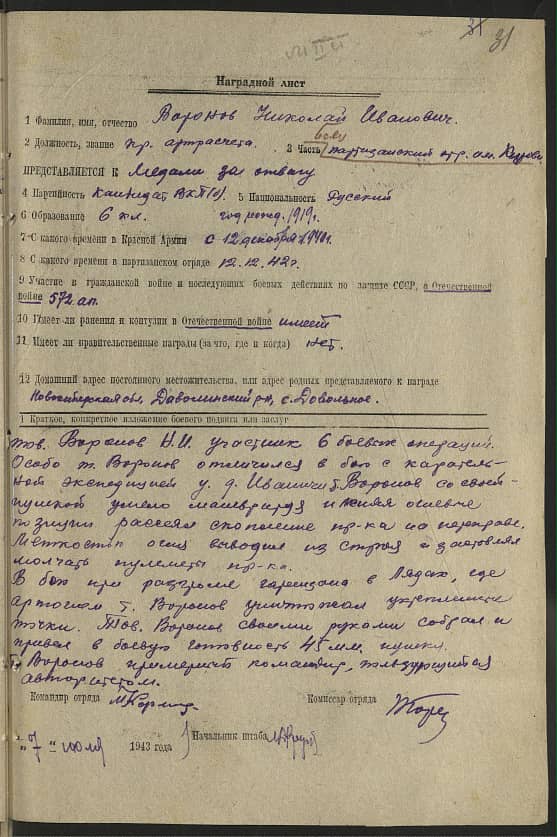 31 31
Наградной лист
1 Фамилия, имя, отчество Воронов Николай Иванович.
2 Должность, звание артрасчета. 3 Часть партизанский отр. им.
ПРЕДСТАВЛЯЕТСЯ К Медали за отвагу
4 Партийность Кандидат ВКП(б). 5 Национальность Русский
6 Образование 6 кл. год рожд. 1919г.
7 С какого времени в Красной Армии с 12 декабря 1940г.
8 С какого времени в партизанском отряде 12.12.42г.
9 Участие в гражданской войне и последующих боевых действиях по защите СССР, в Отечественной
войне 572 ап.
10 Имеет ли ранения и контузии в Отечественной войне имеет
11. Имеет ли правительственные награды (за что, где и когда) нет.
12 Домашний адрес постоянного местожительства, или адрес родных представляемого к награде
Новосибирская обл. Даволинский р-н, с. Довольное.
1 Краткое, конкретное изложение боевого подвига или заслуг
тов. Воронов Н.И. участник 6 боевых операций.
Особо т. Воронов отличился в бою с каратель-
ной экспедицией у д. Иваничи т. Воронов со своей
пушкой умело маневрируя и меняя огневые
позиции рассеял скопление пр-ка на переправе.
Меткостью огня выводил из строя и заставлял
молчать пулеметы пр-ка.
В бою при разгроме гарнизона в Лядах, где
артогнем т. Воронов уничтожал укрепленные
точки. Тов. Воронов своими руками собрал и
привел в боевую готовность 45 мм. пушку.
т. Воронов примерный командир, пользующийся
авторитетом.
Командир отряда Комиссар отряда
Начальник штаба
„7“ июля 1943 года